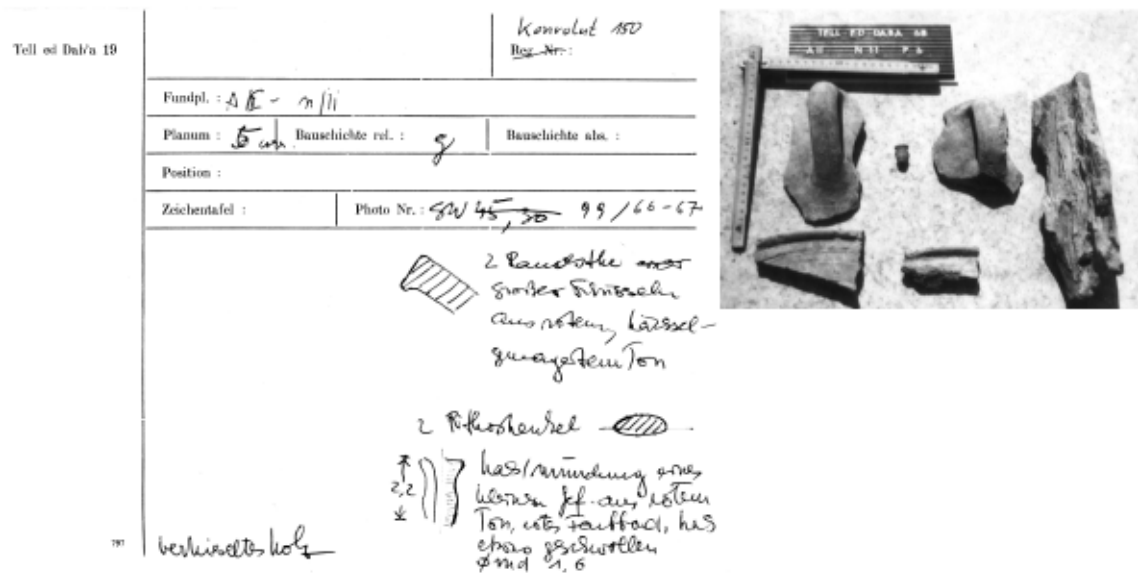 Tell ed Dab'a 19
Konvolut 150
Reg. Nr.:
Fundpl. : A II - n/11
Planum : 5 Bauschichte rel. : g Bauschichte abs. :
Position :
Zeichentafel : Photo Nr. : SW 45, 30 99/66-67
2 Randstke einer
großer Schüsseln
aus rotem, häcksel-
gemagertem Ton
2 Pithoshenkel
2,2
Hals/mündung eines
kleinen Gef. aus rotem
Ton, rotes Farbbad, Hals
etwas geschwollen
Ømd 1,6
verkieseltes Holz
797
TELL ED-DABA 68
A II N 11 P 6